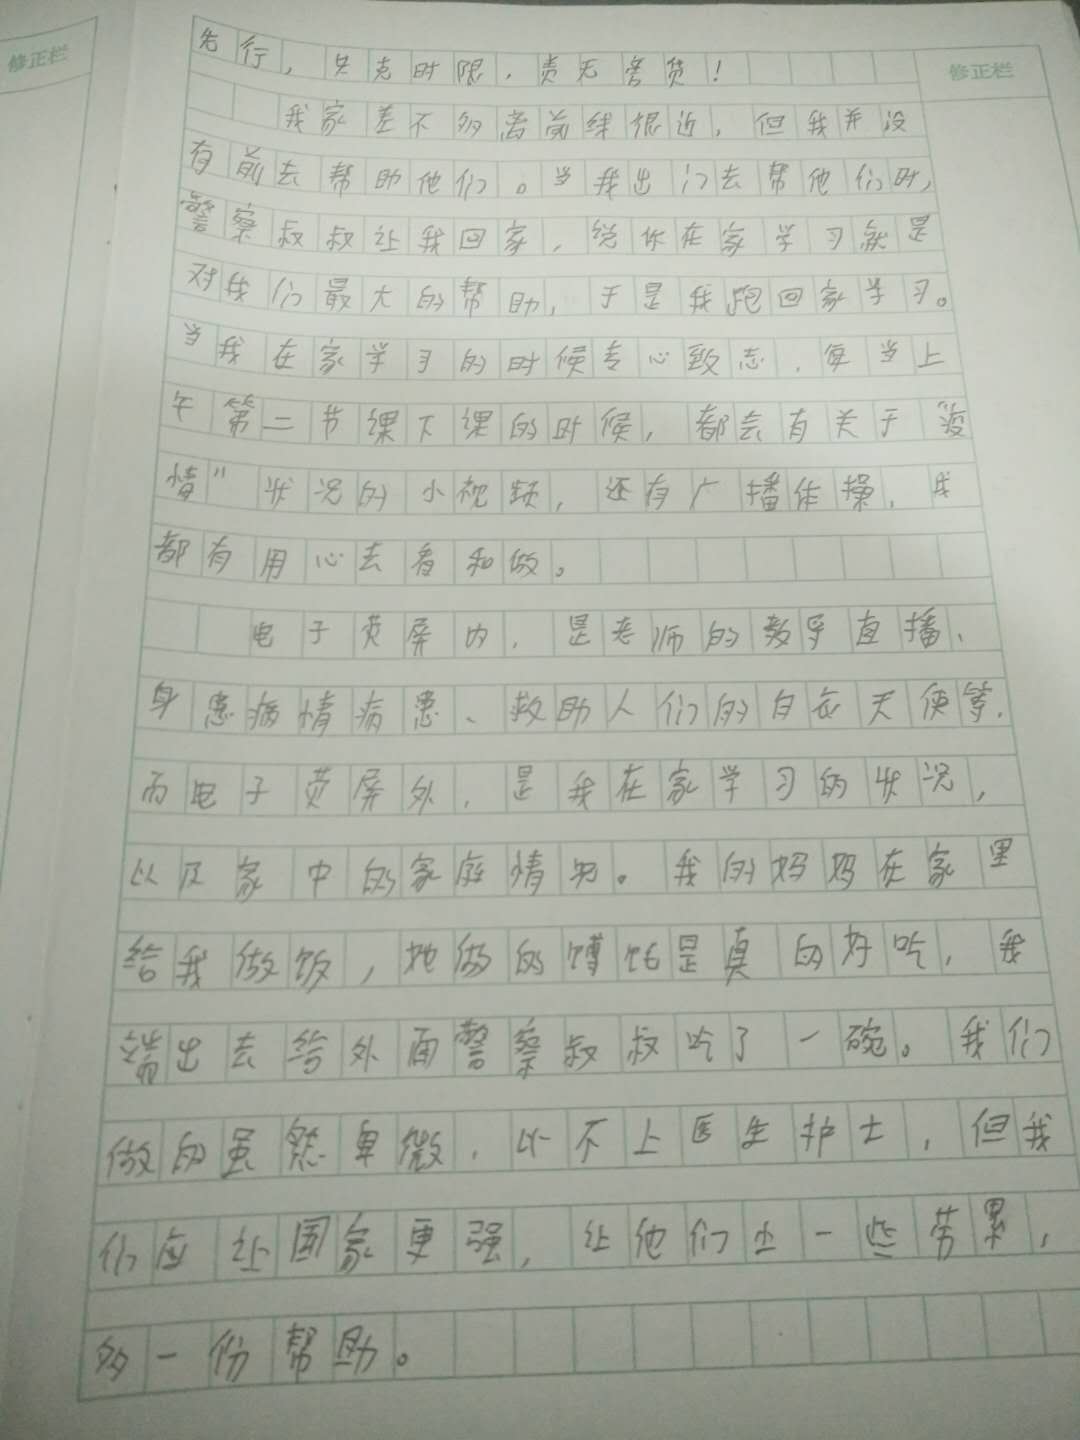 修正栏
修正栏
先行，共克时限，责无害贷！
我家差不多离前线很近，但我并没
有前去帮助他们。当我出门去帮他们时，
警察叔叔让我回家，说你在家学习就是
对我们最大的帮助，于是我跑回家学习。
当我在家学习的时候专心致志，每当上
午第二节课下课的时候，都会有关于“疫
情”状况的小视频，还有广播体操，我
都有用心去看和做。
电子荧屏内，是老师的教导直播、
身患病情病患、救助人们的白衣天使等，
而电子荧屏外，是我在家学习的状况，
以及家中的家庭情况。我的妈妈在家里
给我做饭，她做的馄饨是真的好吃，我
端出去给外面警察叔叔吃了一碗。我们
做的虽然卑微，比不上医生护士，但我
们应让国家更强，让他们少一些劳累，
多一份帮助。